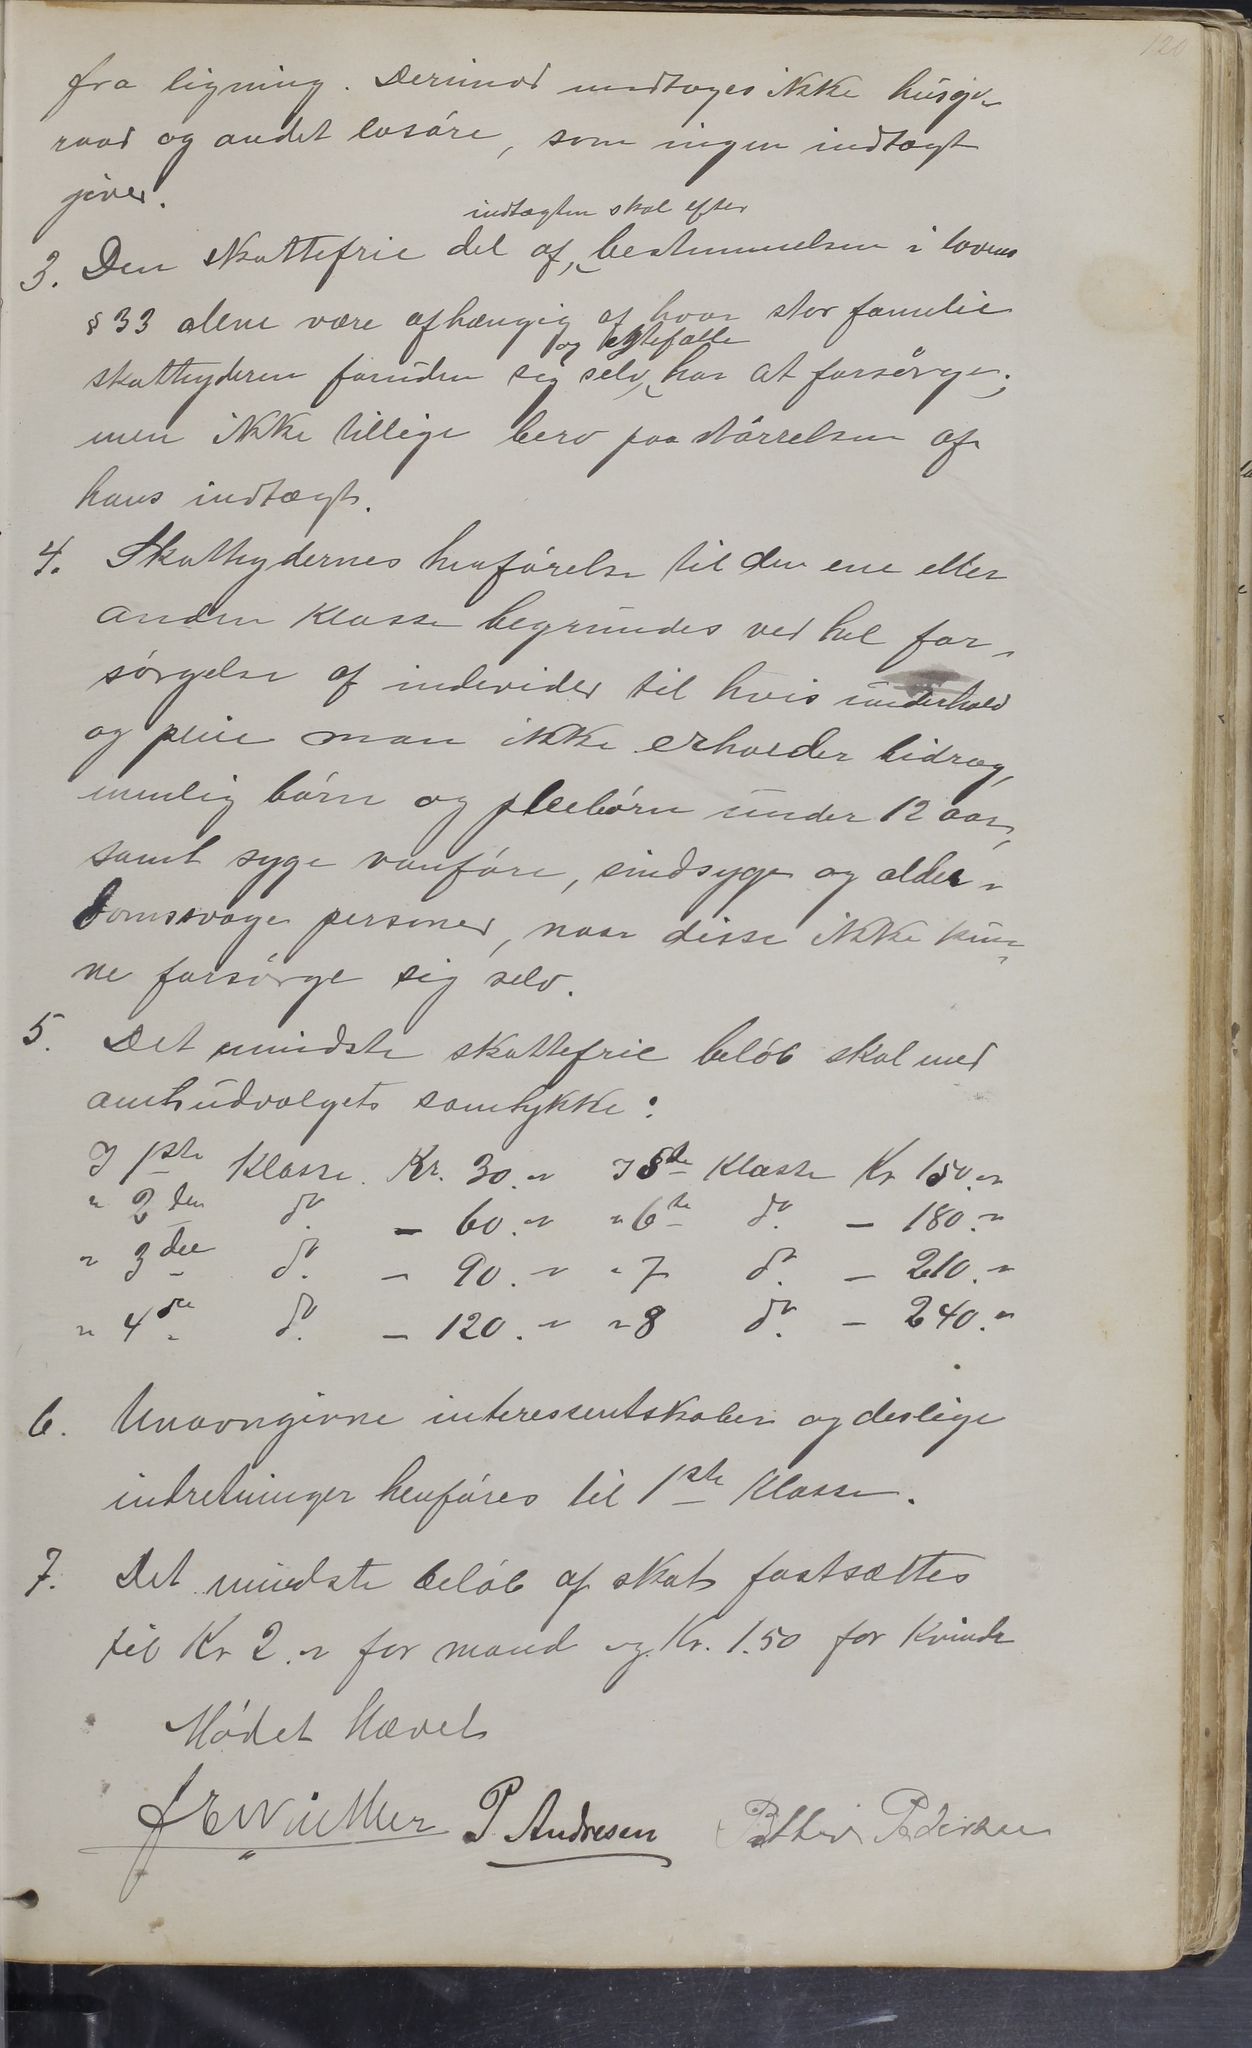 120
fra ligning. Derimod medtages ikke husge-
raad og andet løsøre, som ingen indtægt
giver.
indtægten skal efter
3. Den skattefrie del af, bestemmelsen i lovens
§ 33 alene være afhængig af hvor stor familie
og ægtefælle
skatteyderen foruden sig selv, har at forsørge;
men ikke tillige bero paa størrelsen af
hans indtægt.
4. Skatteydernes henførelse til den ene eller
anden klasse begrundes ved hel for-
sørgelse af individer til hvis underhold
og pleie man ikke erholder bidrag,
nemlig børn og pleiebørn under 12 aar,
samt syge vanføre, sindsyge og alder-
domssvage personer, naar disse ikke kun-
ne forsørge sig selv.
5. Det mindste skattefrie beløb skal med
amtsudvalgets samtykke:
I 1ste Klasse Kr. 30.„ I 5te Klasse Kr 150.„
„ 2den do. – 60.„ „ 6te do. – 180.„
„ 3die do. – 90.„ „ 7 do. – 210.„
„ 4de do. – 120.„ „ 8 do. – 240.„
6. Unavngivne interessentskaber og deslige
indretninger henføres til 1ste Klasse.
7. Det mindste beløb af skat fastsættes
til Kr 2.„ for mand og Kr. 1.50 for Kvinde
Mødet hævet
J E Winther P Andresen Petter Pedersen